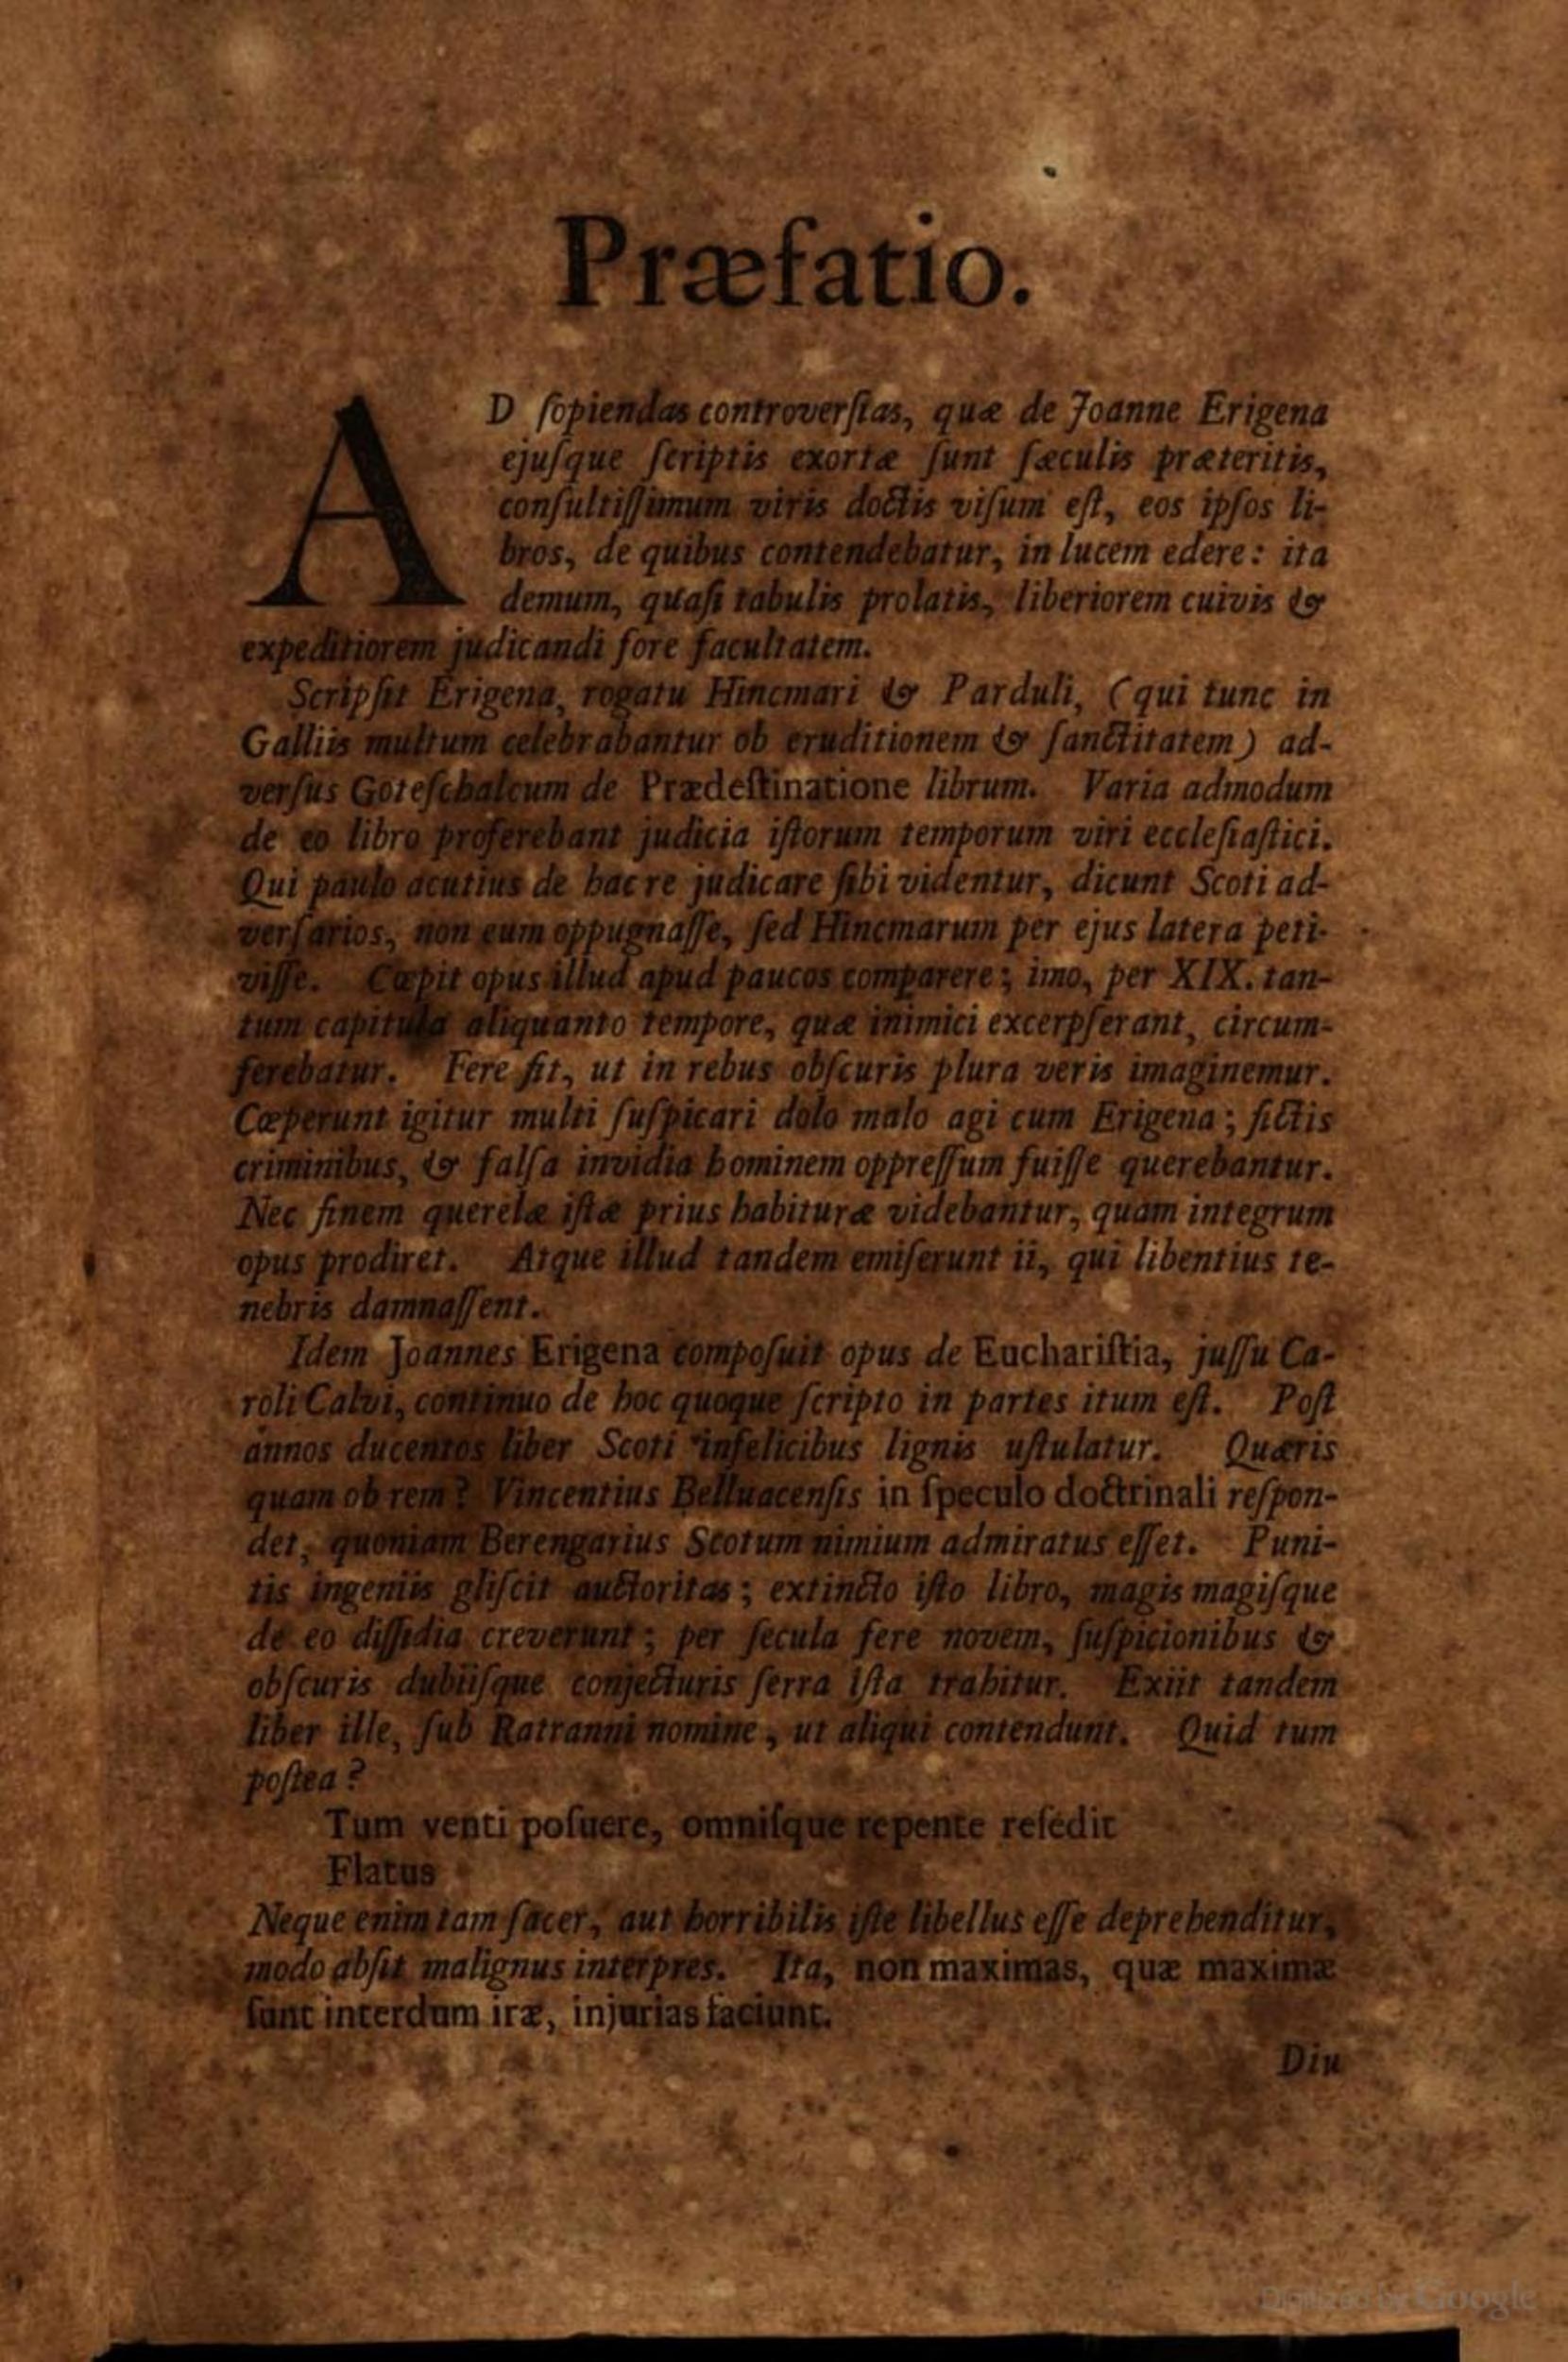 Præfatio.
AD ſopiendas controverſias, quæ de Joanne Erigena
ejuſque ſcriptis exortæ ſunt ſæculis præteritis,
conſultiſſimum viris doctis viſum eſt, eos ipſos li-
bros, de quibus contendebatur, in lucem edere: ita
demum, quaſi tabulis prolatis, liberiorem cuivis &
expeditiorem judicandi fore facultatem.
Scripſit Erigena, rogatu Hincmari & Parduli, (qui tunc in
Galliis multum celebrabantur ob eruditionem & ſanctitatem) ad-
verſus Goteſchalcum de Prædeſtinatione librum. Varia admodum
de eo libro proferebant judicia iſtorum temporum viri eccleſiaſtici.
Qui paulo acutius de hac re judicare ſibi videntur, dicunt Scoti ad-
verſarios, non eum oppugnaſſe, ſed Hincmarum per ejus latera peti-
viſſe. Cœpit opus illud apud paucos comparere; imo, per XIX. tan-
tum capitula aliquanto tempore, quæ inimici excerpſerant, circum-
ferebatur. Fere fit, ut in rebus obſcuris plura veris imaginemur.
Cœperunt igitur multi ſuſpicari dolo malo agi cum Erigena; fictis
criminibus, & falſa invidia hominem oppreſſum fuiſſe querebantur.
Nec finem querelæ iſtæ prius habituræ videbantur, quam integrum
opus prodiret. Atque illud tandem emiſerunt ii, qui libentius te-
nebris damnaſſent.
Idem Joannes Erigena compoſuit opus de Euchariſtia, juſſu Ca-
roli Calvi, continuo de hoc quoque ſcripto in partes itum eſt. Poſt
annos ducentos liber Scoti infelicibus lignis uſtulatur. Quæris
quam ob rem? Vincentius Belluacenſis in ſpeculo doctrinali reſpon-
det, quoniam Berengarius Scotum nimium admiratus eſſet. Puni-
tis ingeniis gliſcit auctoritas; extincto iſto libro, magis magiſque
de eo diſſidia creverunt; per ſecula fere novem, ſuſpicionibus &
obſcuris dubiiſque conjecturis ſerra iſta trahitur. Exiit tandem
liber ille, ſub Ratranni nomine, ut aliqui contendunt. Quid tum
poſtea?
Tum venti poſuere, omniſque repente reſedit
Flatus
Neque enim tam ſacer, aut horribilis iſte libellus eſſe deprehenditur,
modo abſit malignus interpres. Ita, non maximas, quæ maximæ
ſunt interdum iræ, injurias faciunt.
Diu
Digitized by Google